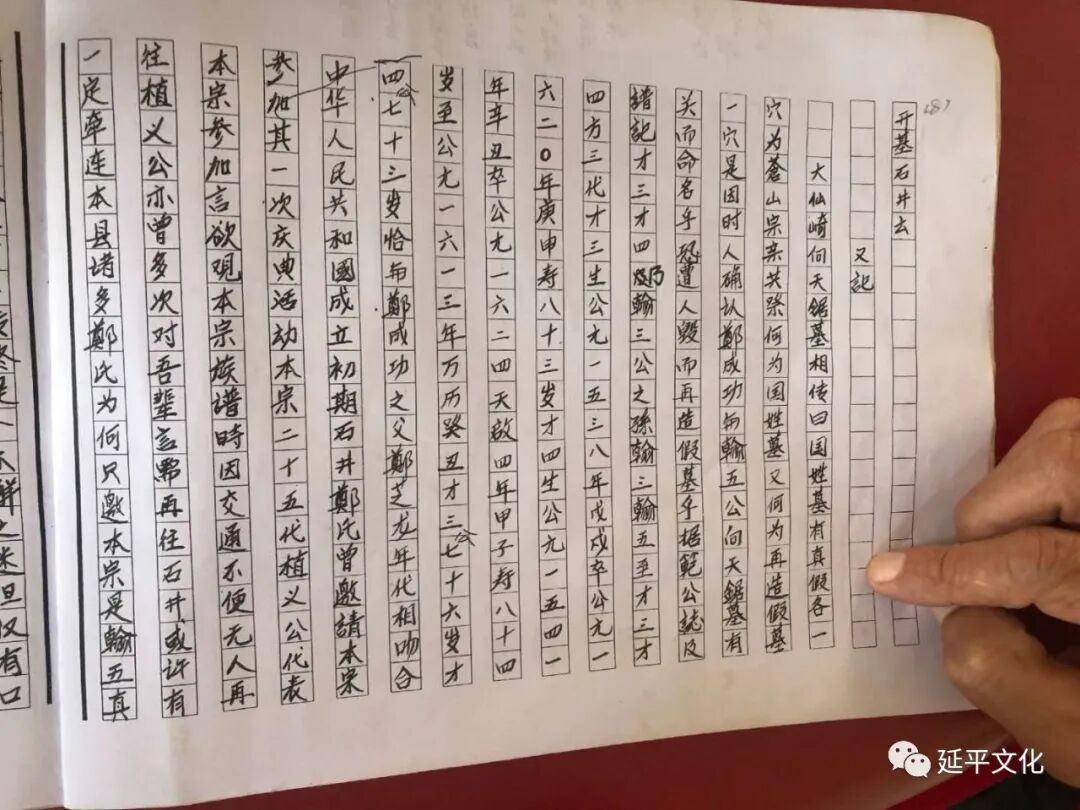 (8)
开基石井去
又記
大仙崎向天鋸墓相传曰国姓墓有真假各一
穴为蒼山宗亲共祭何为国姓墓又何为再造假墓
一穴是因时人确认鄭成功与翰五公向天鋸墓有
关而命名乎恐遭人毁而再造假墓乎据範公誌及
譜記才三才四乃翰三公之孫翰三翰五至才三才
四方三代才三生公元一五三八年戊戌卒公元一
六二〇年庚申寿八十三岁才四生公元一五四一
年辛丑卒公元一六二四天啟四年甲子寿八十四
岁至公元一六一三年万历癸丑才三公七十六岁才
四公七十三岁恰与鄭成功之父鄭芝龙年代相吻合
中华人民共和國成立初期石井鄭氏曾邀請本宗
参加其一次庆典活动本宗二十五代植义公代表
本宗参加言欲观本宗族譜時因交通不便无人再
往植义公亦曾多次对吾輩言需再往石井或许有
一定牵连本县诸多鄭氏为何只邀本宗是翰五真
延平文化